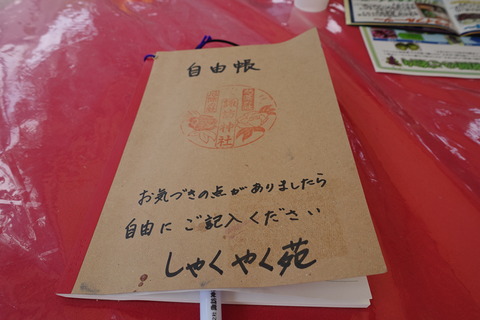 自由帳
お気づきの点がありましたら
自由にご記入ください
しゃくやく苑